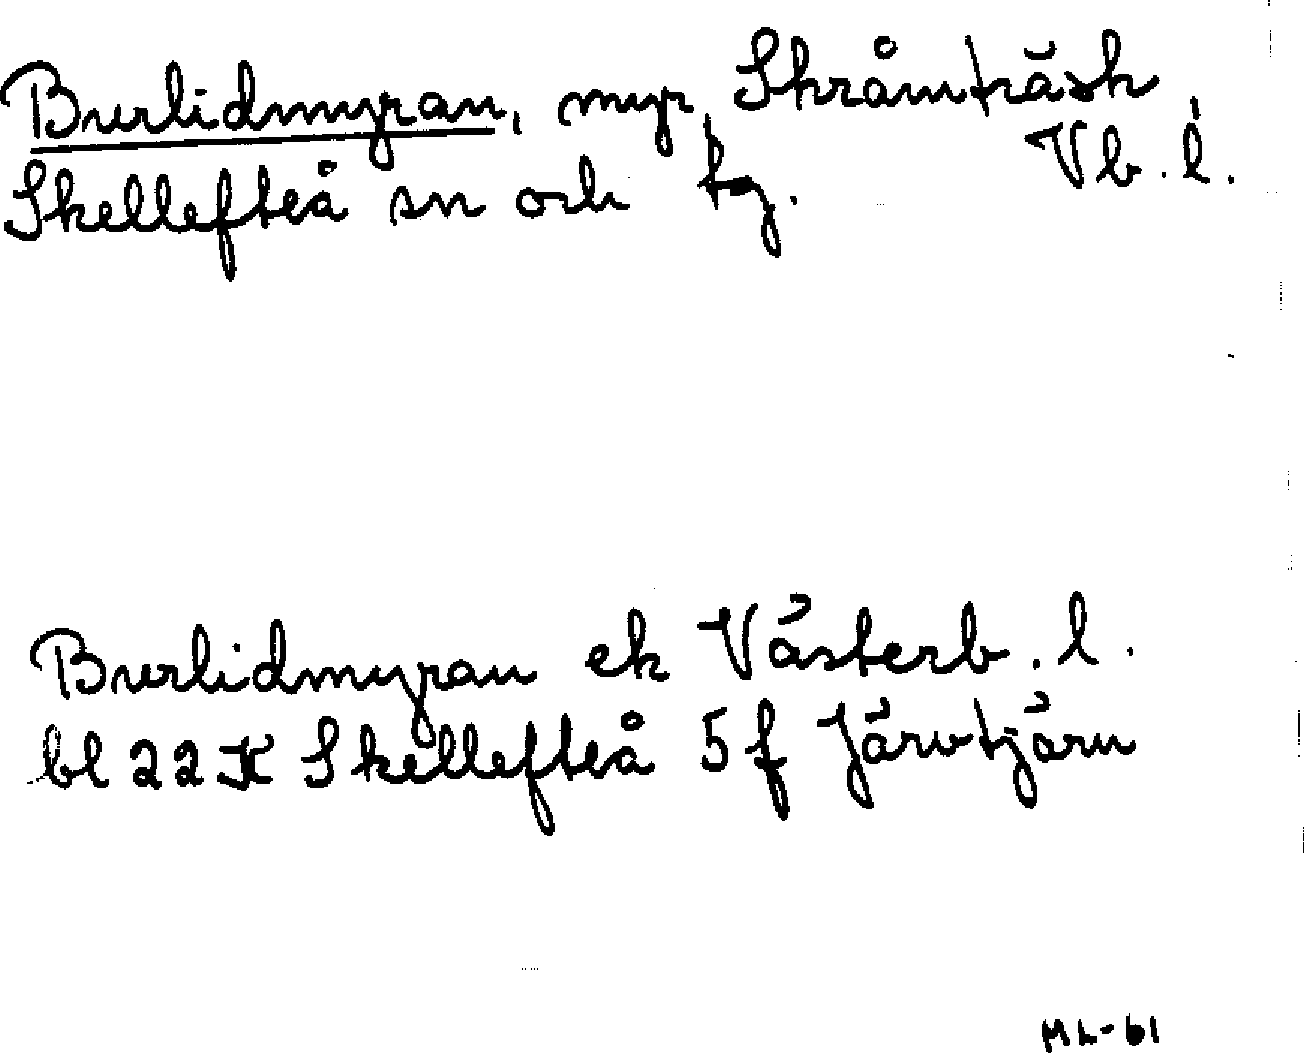 Burlidmyran, myr, Skråmträsk,
Skellefteå sn och tg. Vb. l.
Burlidmyran ek Västerb. l.
bl 22 K Skellefteå 5 f Järvtjärn
ML-61